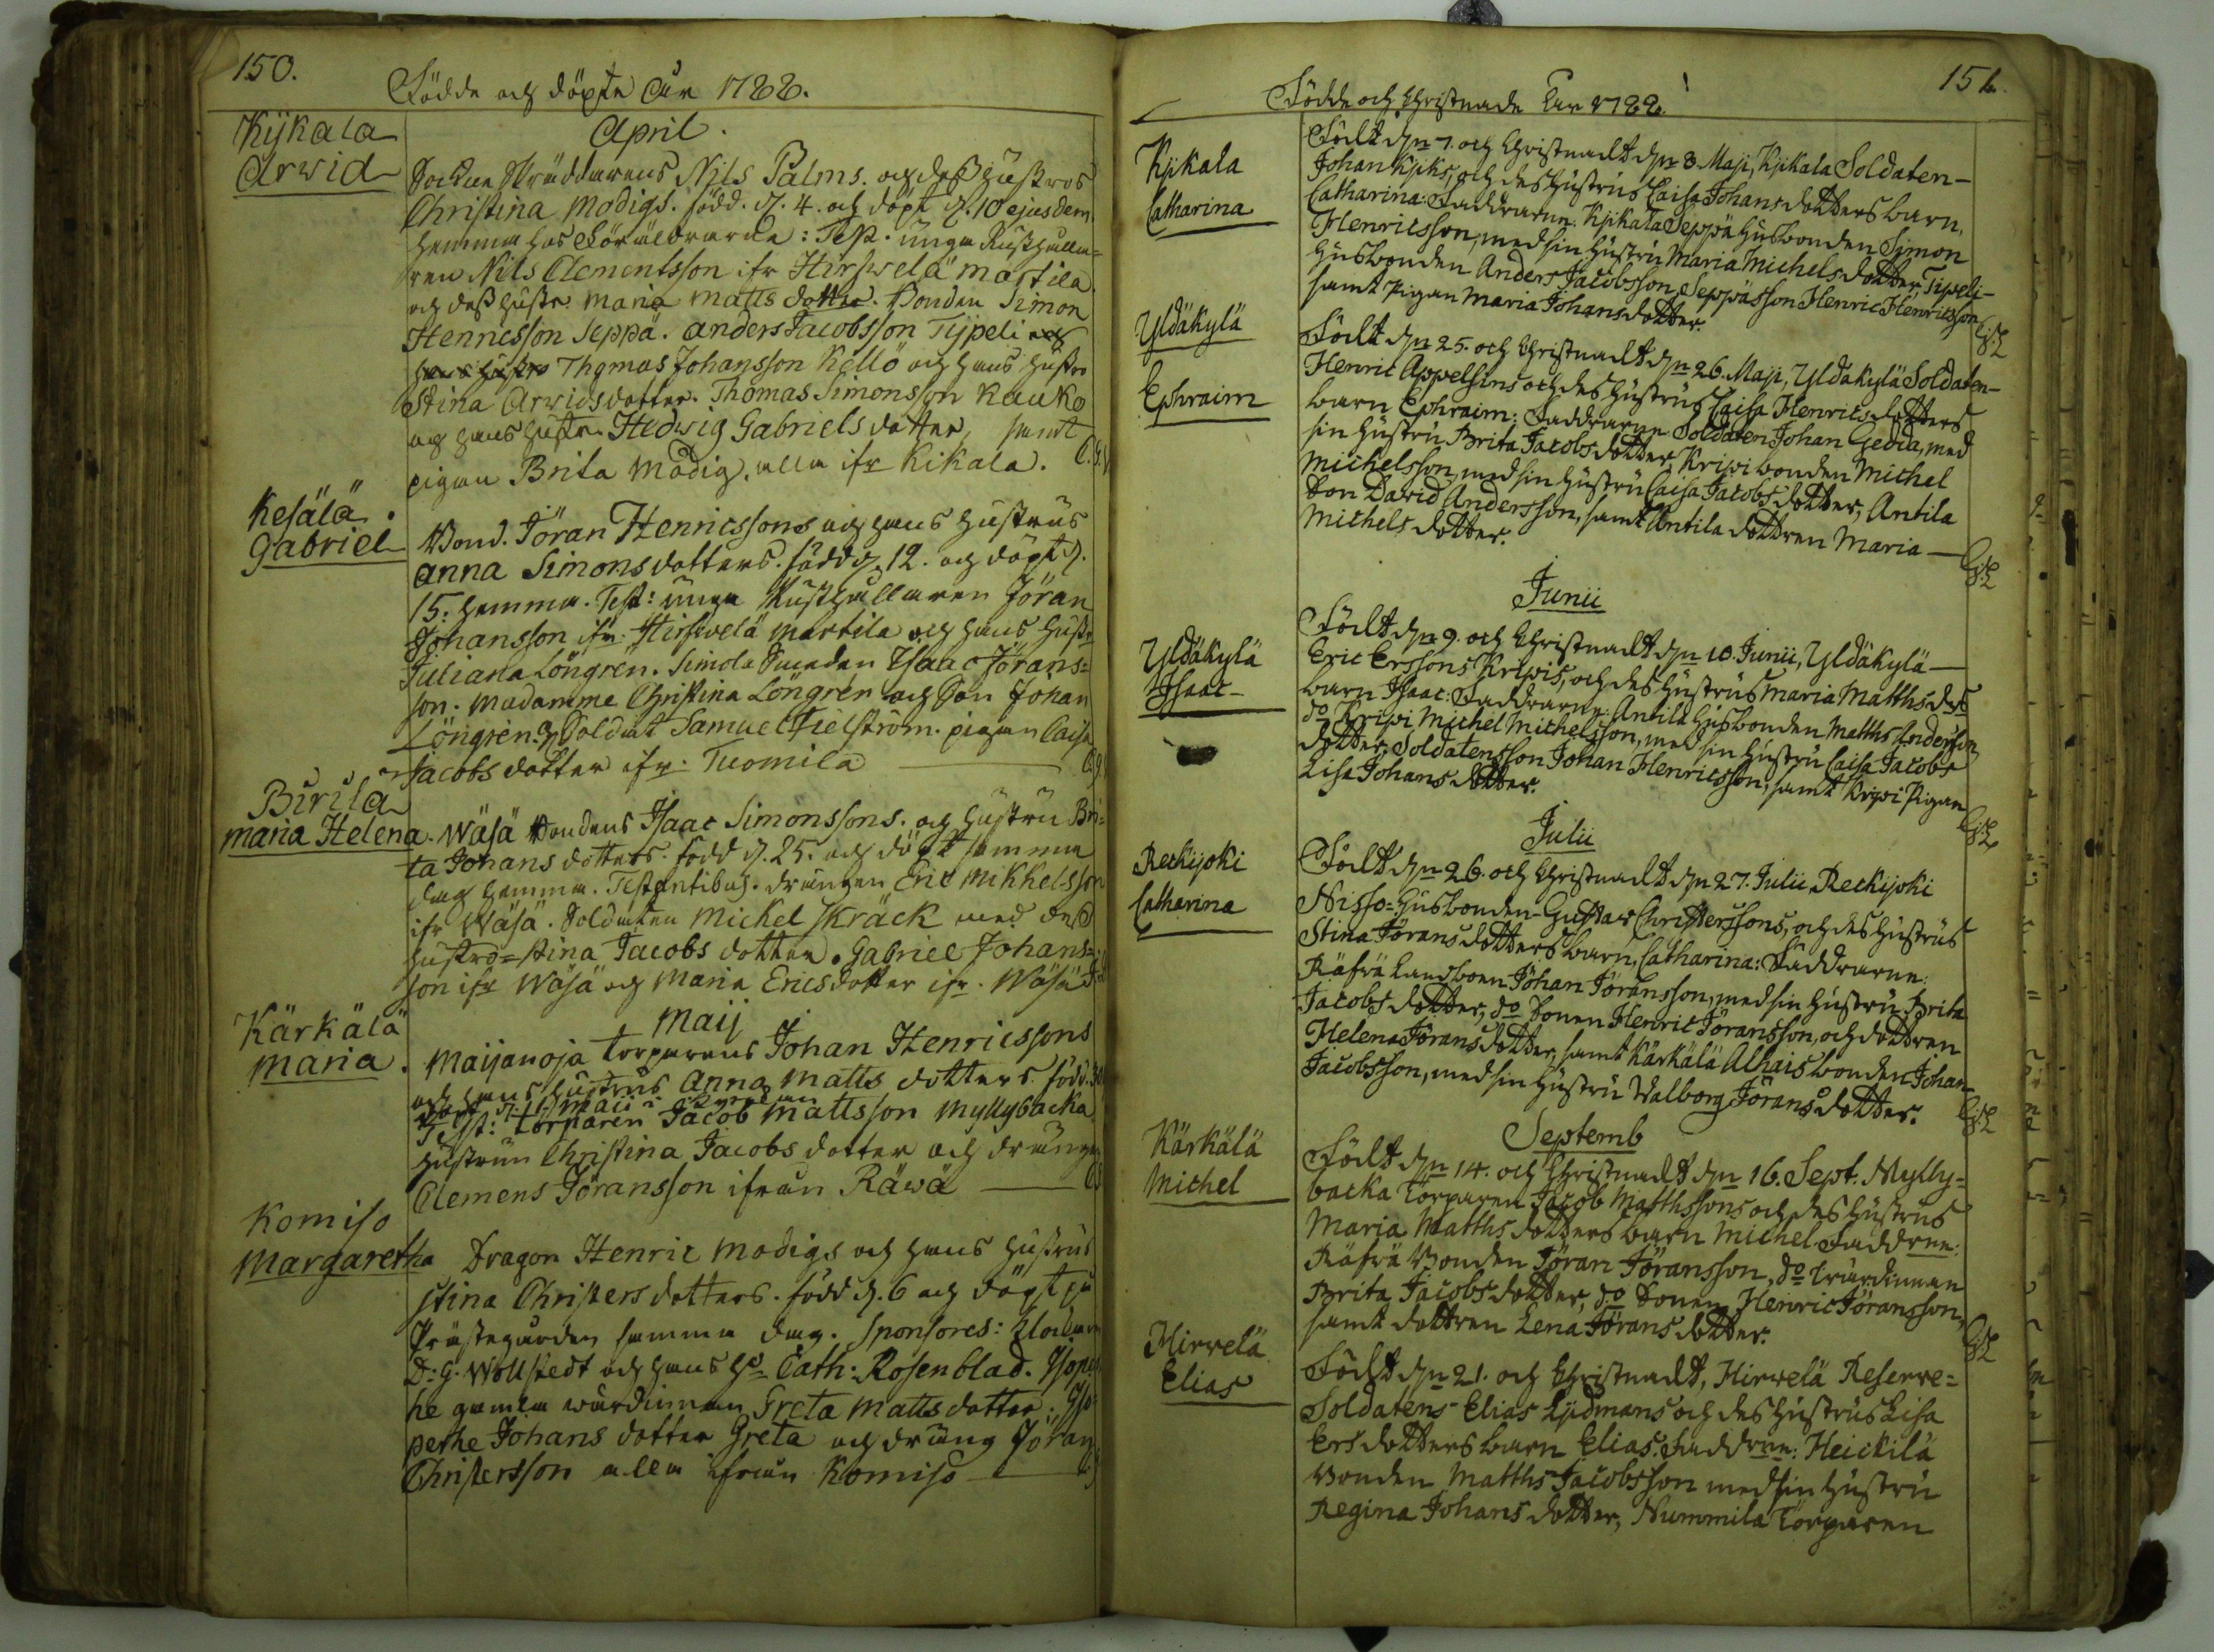 150.
Födde och döpte Åhr 1788.
April.
Kijkala
Arwid
Sockne Skräddarens Nils Palms. och dess hustros
Christina Modigs. född. d. 4. och döpt d. 10 ejusdem
hemma hos Föräldrarna: Test. unga Rusthålla=
ren Nils Clementsson ifr Hirswelä Martila
och dess hustr. Maria Matts dotter. Bonden Simon
Henricsson Seppä. Anders Jacobsson Tijpeli och
hans hustro Thomas Johansson Kellö och hans hustro
Stina Arwidsdotter. Thomas Simonsson Kauko
och hans hustr. Hedwig Gabriels dotter, samt
pigan Brita Modig. alla ifr Kikala.
Kesälä.
Gabriel
Bond. Jöran Henricssons och hans hustrus
Anna Simonsdotters. född d. 12. och döpt d.
15. hemma. Test: unga Rusthållaren Jöran
Johansson ifr. Hirswelä Martila och hans hustr
Juliana Löngren. Simola Bonden Isaac Jörans=
son. Madamme Christina Löngren och Son Johan
Löngren. Soldat Samuel Fielström. pigan Caisa
Jacobs dotter ifr. Tuomila
Purila
Maria Helena. Wäsä Bondens Isaac Simonssons. och hustru Bri=
ta Johans dotters. född d. 25. och döpt samma
dag hemma. Testantibus. drängen Eric Mikkelsson
ifr Wäsä. Soldaten Michel Skräck med dess
hustro Stina Jacobs dotter. Gabriel Johans=
son ifr Wäsä och Maria Ericsdotter ifr. Wäsä
Maij
Kärkälä
Maria.
Maijanoja torparens Johan Henricssons
och hans hustrus Anna Matts dotters född. 30
döpt d. 1. Maii
Test: torparen Jacob Mattsson Myllybacka
hustrun Christina Jacobs dotter och drängen
Clemens Jöransson ifrån Räwä
Komiso
Margaretha
Dragon Henric Modigs och hans hustrus
Stina Christers dotters. född d. 6 och döpt på
Prästegården samma dag. Sponsores: Klockaren
D: G. Wollstedt och hans h:o Cath: Rosenblad. Isoper
he gamla wärdinnan Greta Matts dotter. Iso
perhe Johans dotter Greta och dräng Jöran
Christersson alla ifrån Komiso
151.
Födde och Christnade Åhr 1788.
Kjikala
Catharina
Födt d:n 7. och Christnadt d:n 8. Maji, Kjikala Soldaten-
Johan Kjiks, och des Hustrus Caisa Johans dotters barn,
Catharina: Faddrarne. Kjikala Seppä Husbonden Simon
Henricsson, med sin Hustru Maria Michels dotter, Tipeli-
Husbonden Anders Jacobsson, Seppässon Henric Henricsson,
samt Pigan Maria Johans dotter.
Yldäkylä
Ephraim
Födt d:n 25. och Christnadt d:n 26. Maji, Yldäkylä Soldaten-
Henric Appelsins och des Hustrus Caisa Henrics dotters
barn Ephraim: Faddrarne Soldaten Johan Gedda, med
sin Hustru Brita Jacobs dotter, Kripi bonden Michel
Michelsson, med sin Hustru Caisa Jacobs dotter, Antila
Son David Andersson, samt Antila dottren Maria -
Michels dotter.
Junii
Yldäkylä
Isaac
Födt d:n 9. och Christnadt d:n 10. Junii, Yldäkylä -
Eric Erssons Kripis, och des Hustrus Maria Matths drs
barn Isaac: Faddrarne: Antila Husbonden Matths Andersson,
d:o Kripi Michel Michelsson, med sin Hustru Caisa Jacobs
dotter, Soldatensson Johan Henricsson, samt Kripi Pigan
Lisa Johans dotter.
Julii
Reckijoki
Catharina
Födt d:n 26. och Christnadt d:n 27. Julii, Reckijoki
Nisso=Husbonden Gustav Christerssons, och des Hustrus
Stina Jörans dotters barn, Catharina: Faddrarne:
Räfvä Landboen Johan Jöransson, med sin Hustru Brita
Jacobs dotter, d:o Sonen Henric Jöransson, och dottren
Helena Jörans dotter, samt Kärkälä Alhais bonden Johan
Jacobsson, med sin Hustru Walborg Jörans dotter.
Septemb
Kärkälä
Michel
Födt d:n 14. och Christnadt d:n 16. Sept. Mylly=
backa Torparen Jacob Matthssons och des Hustrus
Maria Matths dotters barn Michel Faddrne:
Räfvä Bonden Jöran Jöransson, d:o wärdinnan
Brita Jacobs dotter, d:o Sonen Henric Jöransson,
samt dottren Lena Jörans dotter.
Hirvelä
Elias
Födt d:n 21. och Christnadt, Hirvelä Reserve=
Soldatens Elias Lydmans och des Hustrus Lisa
Ers dotters barn Elias. Faddrne: Heickilä
Bonden Matths Jacobsson med sin Hustru
Regina Johans dotter, Nummila Torparen